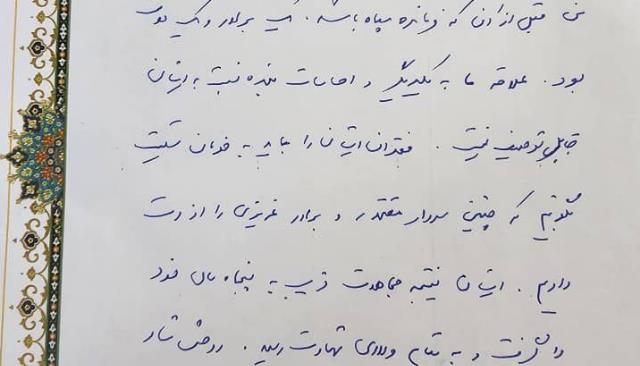 من قبل از آن که فرمانده سپاه باشد، یک برادر و یک دوست
بود. علاقه ما به یکدیگر و احساسات بنده نسبت به ایشان
قابل توصیف نیست. فقدان ایشان را باید به خودمان تسلیت
بگوئیم که چنین سردار مقتدر و برادر عزیزی را از دست
دادیم. ایشان نتیجه مجاهدت قریب به پنجاه سال خود
را گرفت و به مقام والای شهادت رسید. روحش شاد